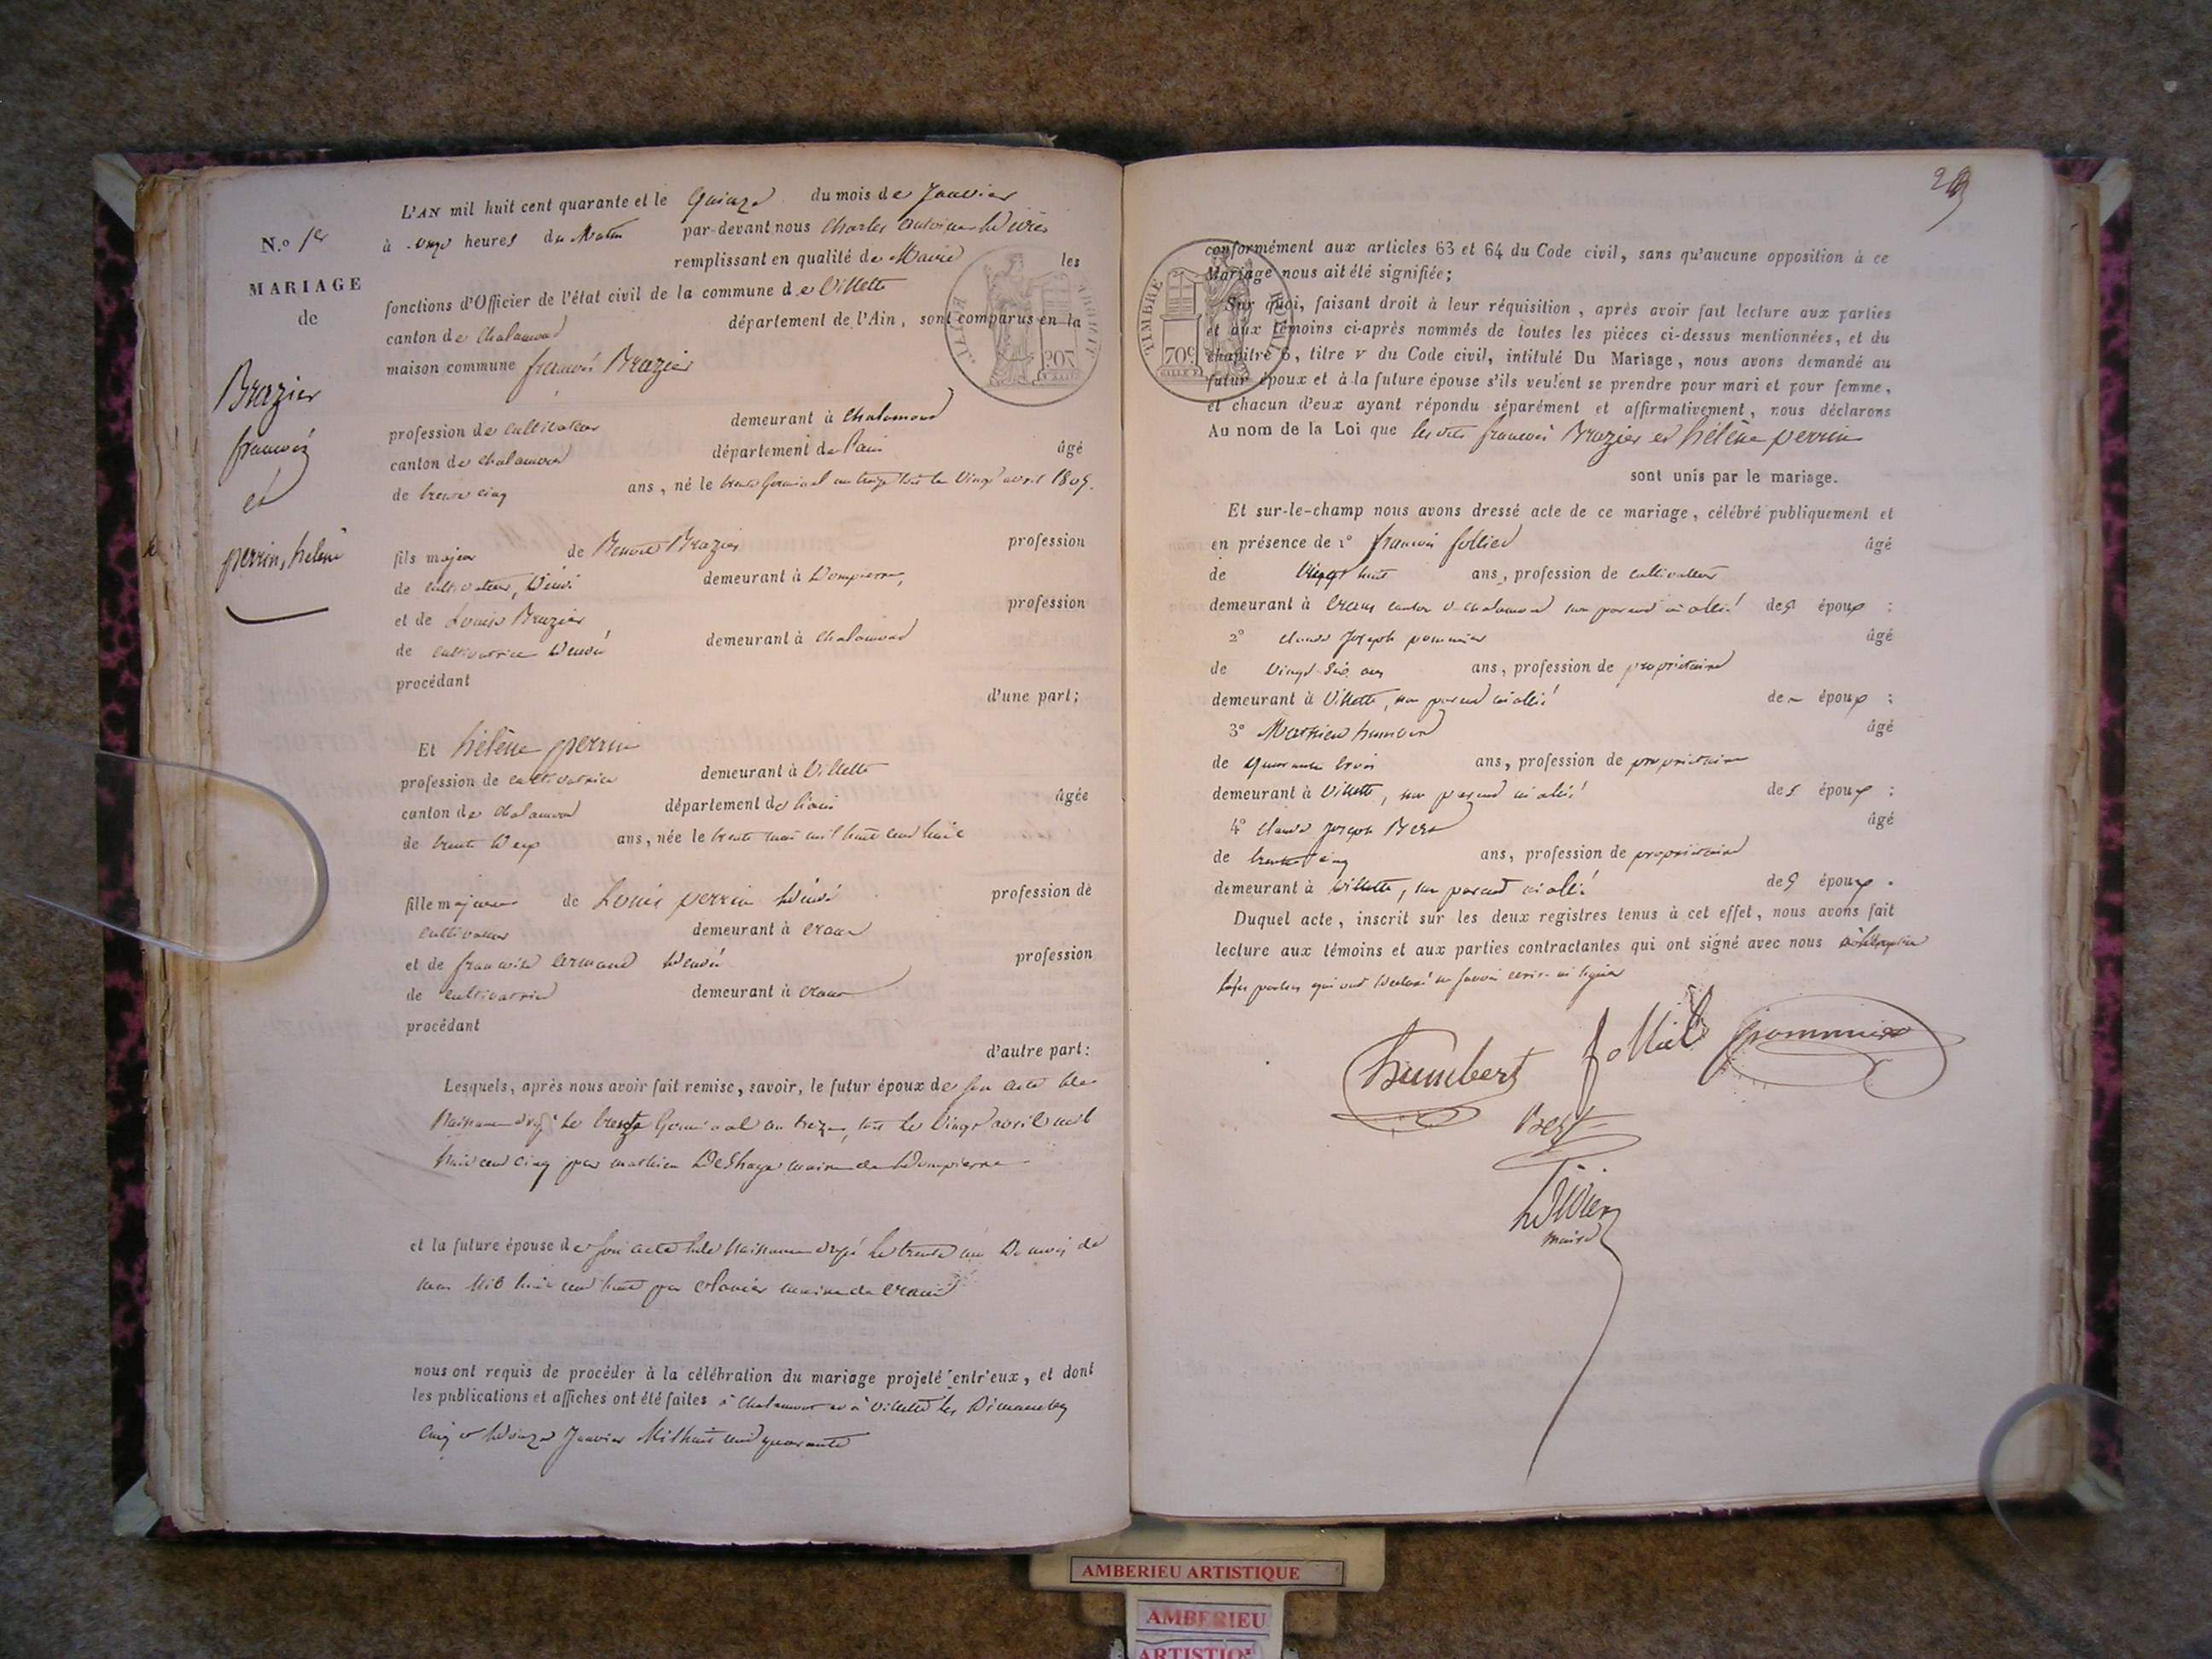 N.º 1er
MARIAGE
de
Brazier
françois
et
perrin, hélène
L'AN mil huit cent quarante et le Quinze du mois de Janvier
à onze heures du Matin par-devant nous Charles Antoine
remplissant en qualité de Maire les
fonctions d'Officier de l'état civil de la commune de Villette
canton de Chalamond département de l'Ain, sont comparus en la
maison commune françois Brazier
profession de cultivateur demeurant à Chalamond
canton de Chalamond département de l'ain âgé
de trente cinq ans, né le trente Germinal an treize soit le Vingt avril 1805.
fils majeur de Benoit Brazier profession
de cultivateur, demeurant à Dompierre,
et de Louise Brazier profession
de cultivatrice demeurant à Chalamond
procédant
d'une part;
Et hélène perrin
profession de cultivatrice demeurant à Villette
canton de Chalamond département de l'ain âgée
de trente ans, née le trente mai mil huit cent huit
fille majeure de Louis perrin profession de
cultivateur demeurant à Crans
et de françoise profession
de cultivatrice demeurant à Crans
procédant
d'autre part:
Lesquels, après nous avoir fait remise, savoir, le futur époux de son acte de
Naissance le trente Germinal an treize, soit le Vingt avril mil
huit cent cinq par mathieu maire de Dompierre
et la future épouse de son acte de Naissance le trente un Du mois de
mai Mil huit cent huit par maire de Crans
nous ont requis de procéder à la célébration du mariage projeté entr'eux, et dont
les publications et affiches ont été faites à Chalamont et à Villette les Dimanches
Cinq et Douze Janvier Mil huit cent quarante
TIMBRE ROYAL
70c
conformément aux articles 63 et 64 du Code civil, sans qu'aucune opposition à ce
Mariage nous ait été signifiée;
Sur quoi, faisant droit à leur réquisition, après avoir fait lecture aux parties
et aux témoins ci-après nommés de toutes les pièces ci-dessus mentionnées, et du
chapitre 6, titre v du Code civil, intitulé Du Mariage, nous avons demandé au
futur époux et à la future épouse s'ils veulent se prendre pour mari et pour femme,
et chacun d'eux ayant répondu séparément et affirmativement, nous déclarons
Au nom de la Loi que les dits françois Brazier et hélène perrin
sont unis par le mariage.
Et sur-le-champ nous avons dressé acte de ce mariage, célébré publiquement et
en présence de 1º françois follied âgé
de Vingt huit ans, profession de cultivateur
demeurant à Crans canton de chalamond non parent ni allié des époux;
2º claude Joseph pommier âgé
de Vingt six ans ans, profession de propriétaire
demeurant à Villette, non parent ni allié de époux;
3º Mathieu humbert âgé
de quarante trois ans, profession de propriétaire
demeurant à Villette, non parent ni allié des époux;
4º claude Joseph Bert âgé
de trente cinq ans, profession de propriétaire
demeurant à Villette, non parent ni allié des époux.
Duquel acte, inscrit sur les deux registres tenus à cet effet, nous avons fait
lecture aux témoins et aux parties contractantes qui ont signé avec nous à l'exception
des parties qui ont déclaré ne savoir écrire ni signer
humbert follied pommier
Bert
maire
AMBERIEU ARTISTIQUE
AMBERIEU
ARTISTIQUE